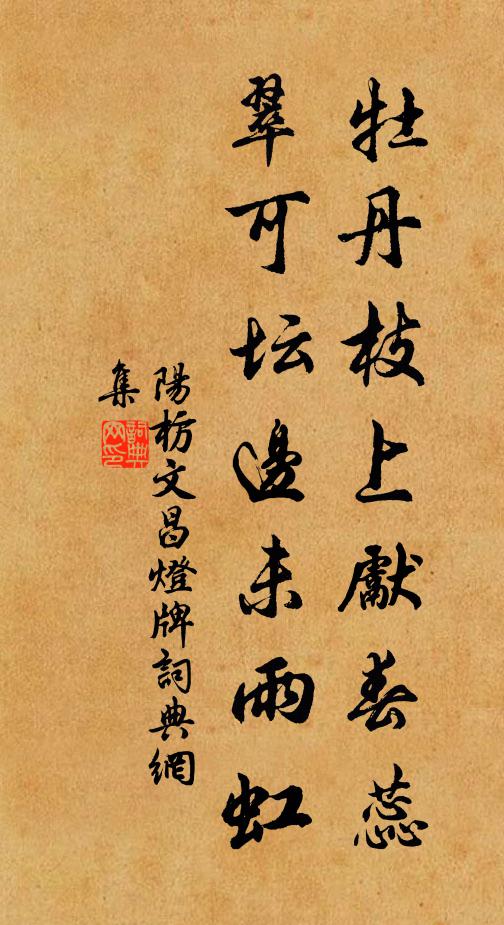 牡丹枝上獻春蕊
翠可坛邊未雨虹
陽枋文昌燈牌詞典網
集
詞典
网印